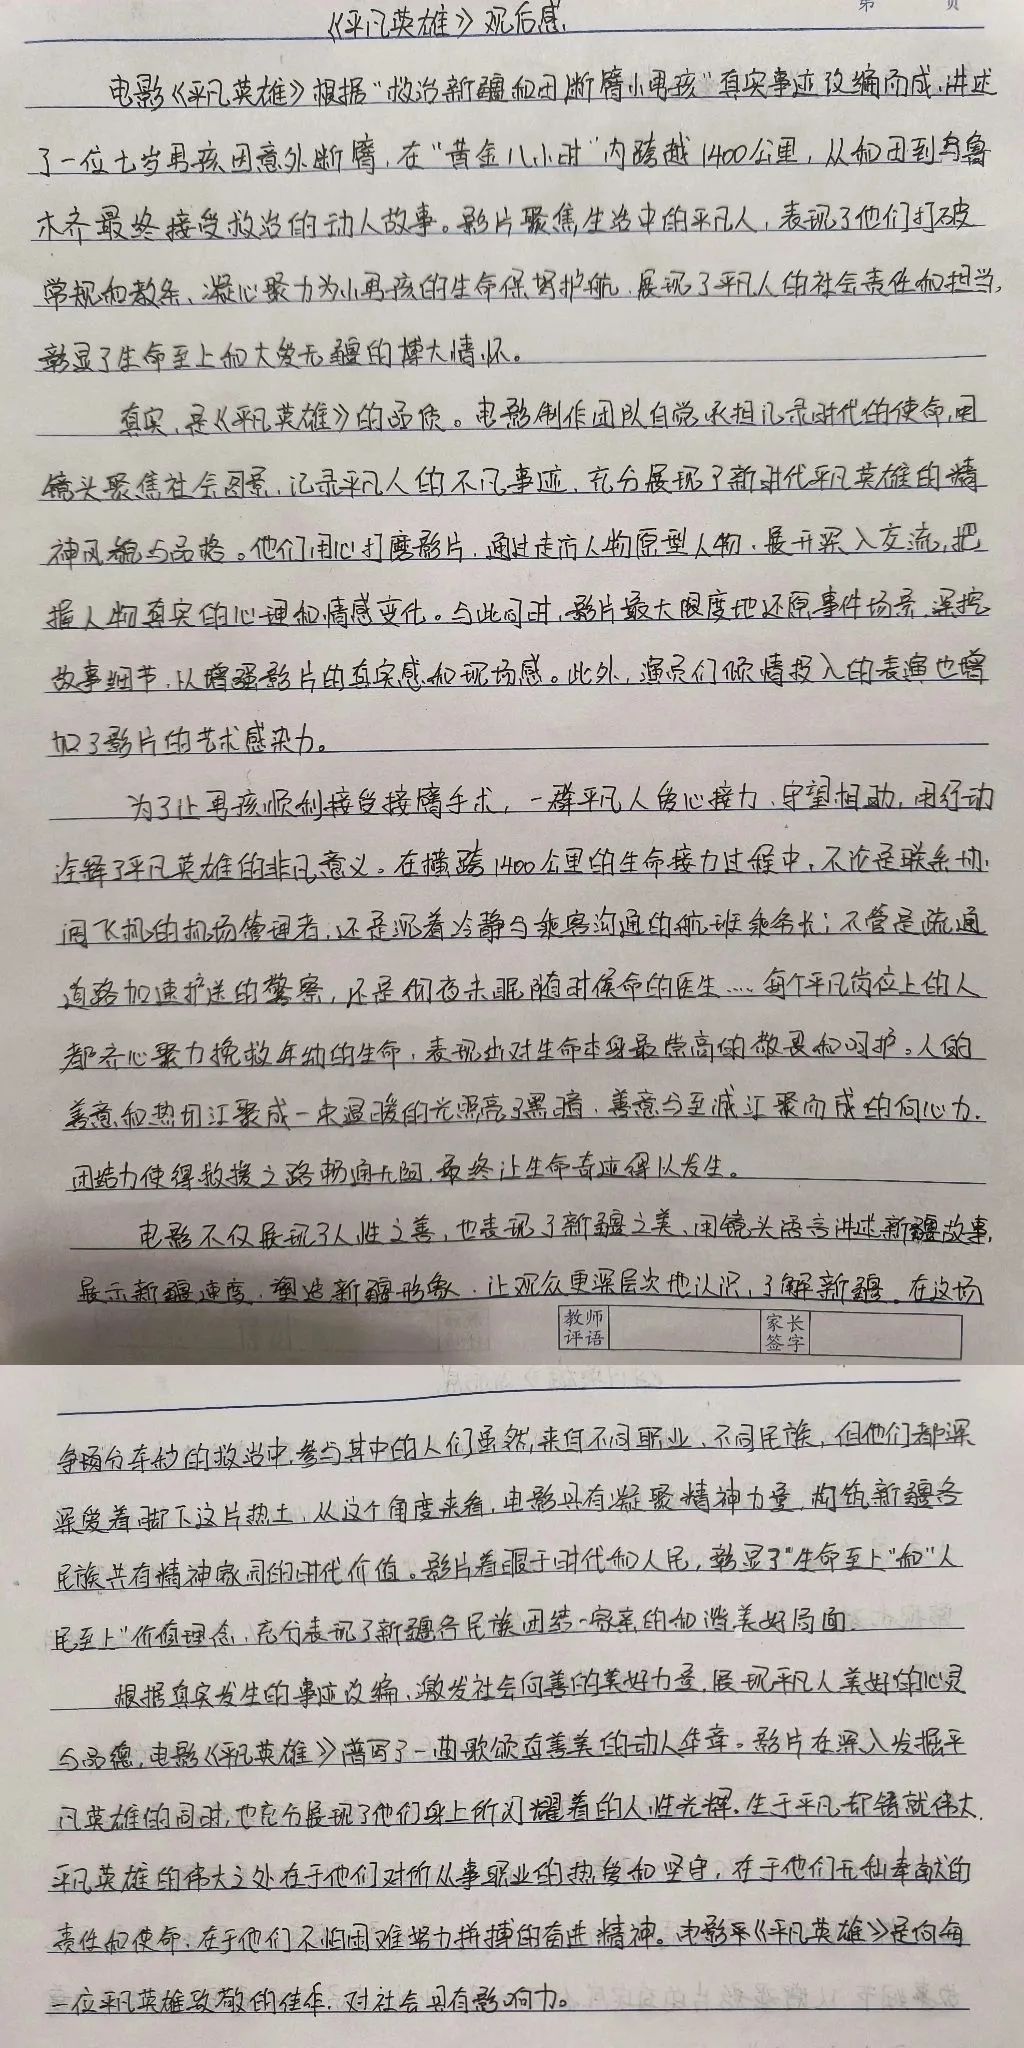 第 页
《平凡英雄》观后感
电影《平凡英雄》根据“救治新疆和田断臂小男孩”真实事迹改编而成,讲述
了一位七岁男孩因意外断臂,在“黄金八小时”内跨越1400公里,从和田到乌鲁
木齐最终接受救治的动人故事。影片聚焦生活中的平凡人,表现了他们打破
常规和教条、凝心聚力为小男孩的生命保驾护航,展现了平凡人的社会责任和担当,
彰显了生命至上和大爱无疆的博大情怀。
真实,是《平凡英雄》的品质。电影制作团队自觉承担记录时代的使命,用
镜头聚焦社会图景,记录平凡人的不凡事迹,充分展现了新时代平凡英雄的精
神风貌与品格。他们用心打磨影片,通过走访人物原型人物,展开深入交流,把
握人物真实的心理和情感变化。与此同时,影片最大限度地还原事件场景,深挖
故事细节,以增强影片的真实感和现场感。此外,演员们倾情投入的表演也增
加了影片的艺术感染力。
为了让男孩顺利接受接臂手术,一群平凡人爱心接力、守望相助,用行动
诠释了平凡英雄的非凡意义。在横跨1400公里的生命接力过程中,不论是联系协
调飞机的机场管理者,还是沉着冷静与乘客沟通的航班乘务长;不管是疏通
道路加速护送的警察,还是彻夜未眠随时候命的医生……每个平凡岗位上的人
都齐心聚力挽救年幼的生命,表现出对生命本身最崇高的敬畏和呵护。人的
善意和热切汇聚成一束温暖的光照亮了黑暗,善意与至诚汇聚而成的向心力、
团结力使得救援之路畅通无阻,最终让生命奇迹得以发生。
电影不仅展现了人性之善,也表现了新疆之美、用镜头语言讲述新疆故事,
展示新疆速度,塑造新疆形象,让观众更深层次地认识,了解新疆。在这场
教师评语 家长签字
争分夺秒的救治中,参与其中的人们虽然来自不同职业、不同民族,但他们都深
深爱着脚下这片热土,从这个角度来看,电影具有凝聚精神力量,构筑新疆各
民族共有精神家园的时代价值。影片着眼于时代和人民,彰显了“生命至上”和“人
民至上”价值理念,充分表现了新疆各民族团结一家亲的和谐美好局面
根据真实发生的事迹改编,激发社会向善的美好力量,展现平凡人美好的心灵
与品德,电影《平凡英雄》谱写了一曲歌颂真善美的动人华章。影片在深入发掘平
凡英雄的同时,也充分展现了他们身上所闪耀着的人性光辉。生于平凡却铸就伟大,
平凡英雄的伟大之处在于他们对所从事职业的热爱和坚守,在于他们无私奉献的
责任和使命,在于他们不怕困难努力拼搏的奋进精神。电影《平凡英雄》是向每
一位平凡英雄致敬的佳作,对社会具有影响力。